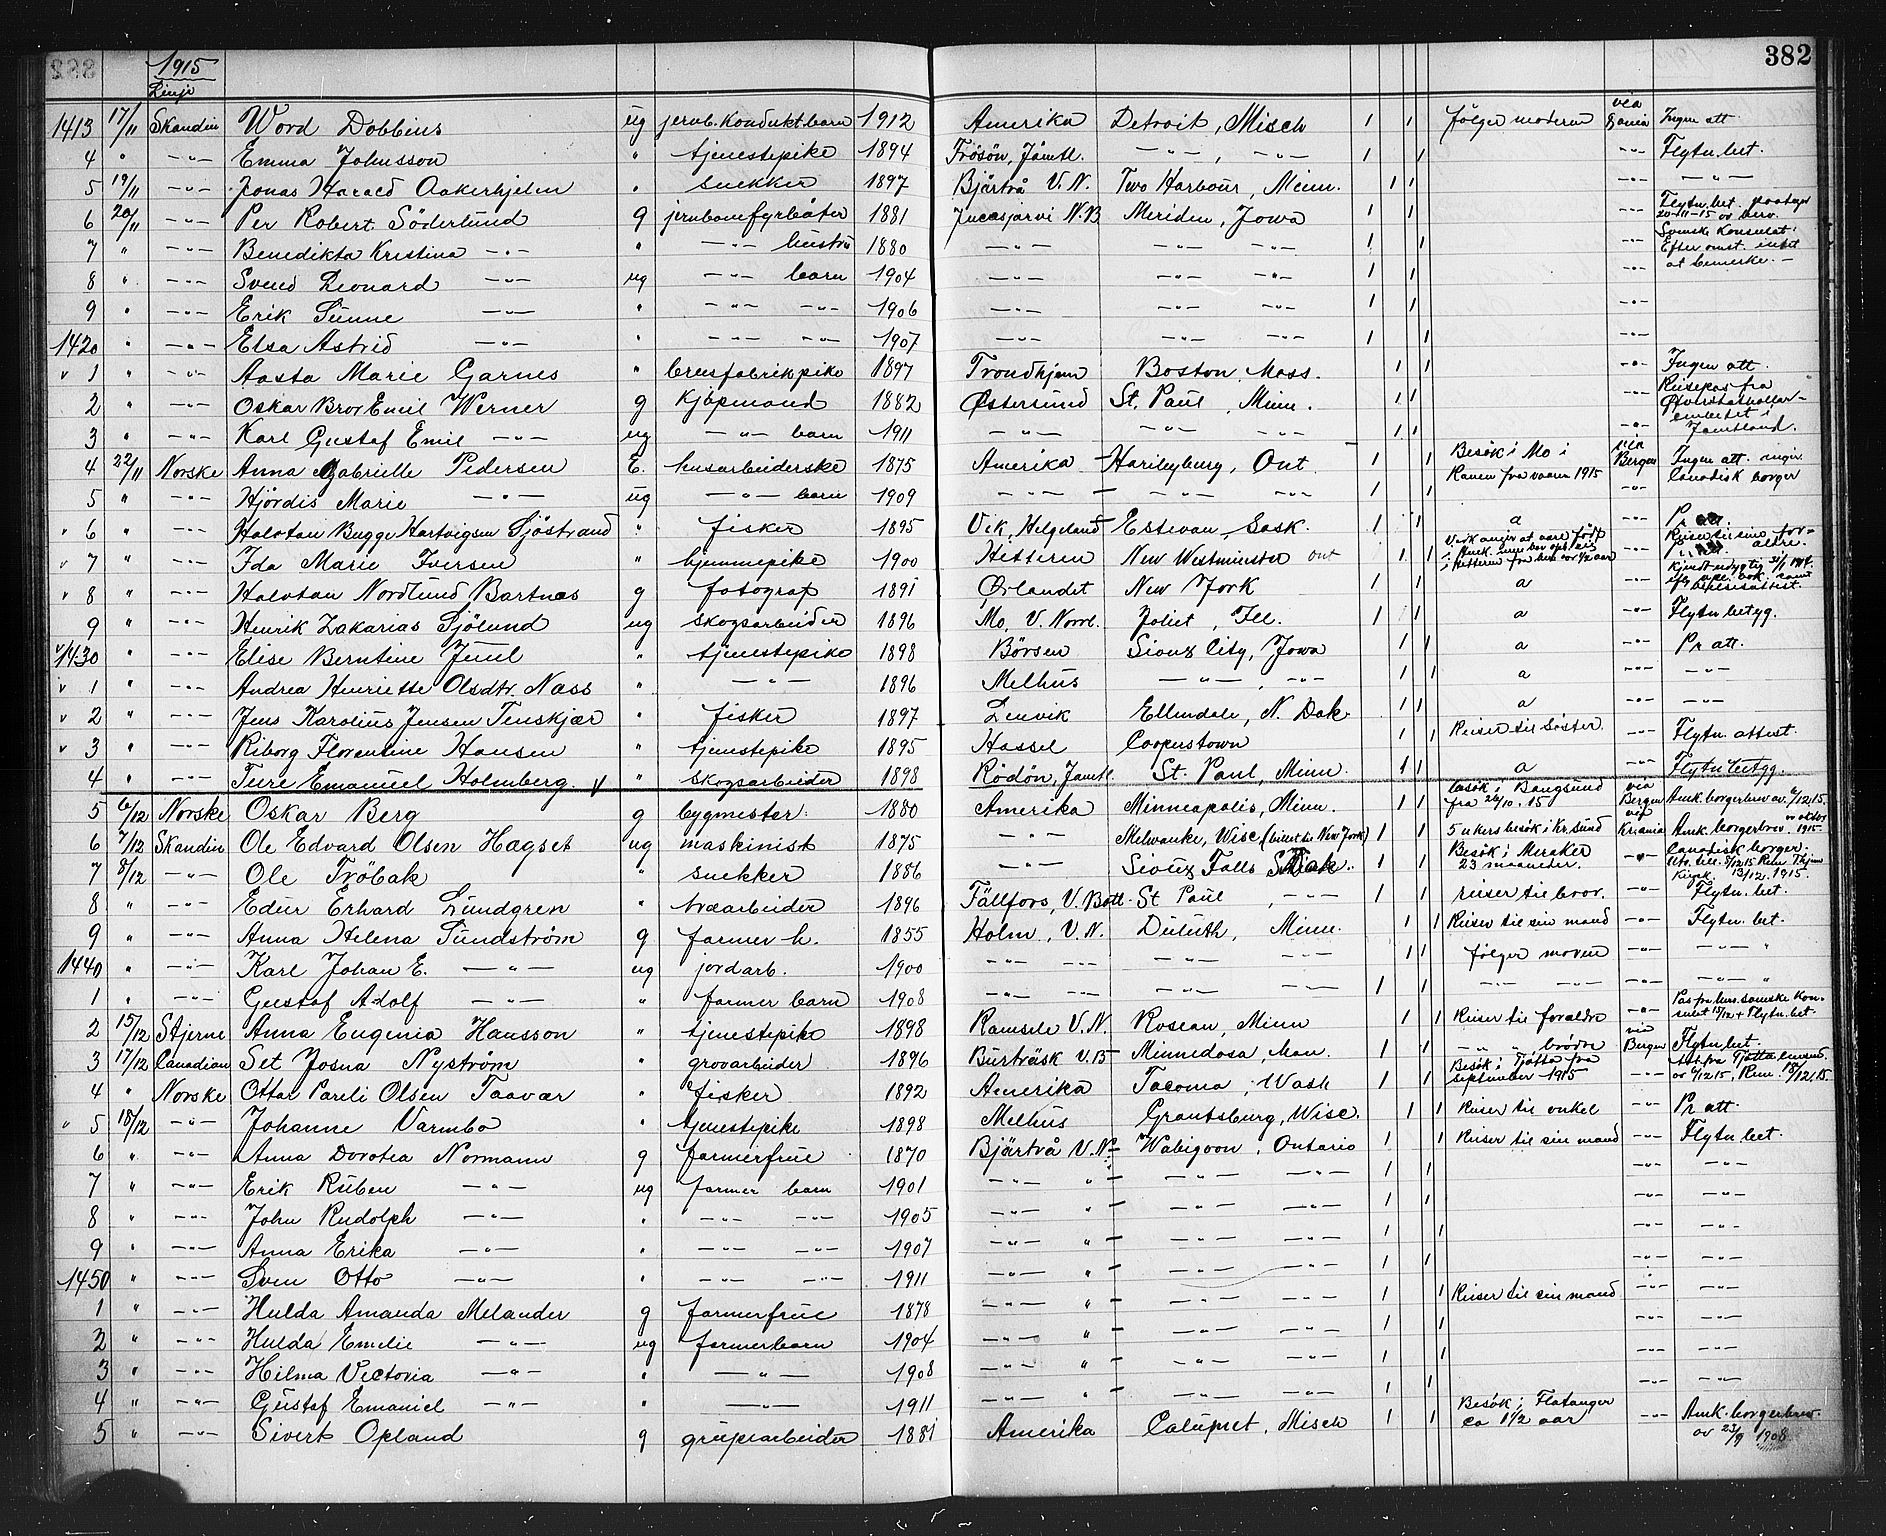 1915
382
Linje
1413 17/11 Skandin Word Dobbins ug jernb. kondukt. barn 1912 Amerika Detroit, Misch 1 1 følger moderen via Xania Ingen att.
4 " —"— Emma Johnsson " tjenestepike 1894 Frösön, Jämtl. —"—, —"— 1 1 —"— Flytn. bet.
5 19/11 —"— Jonas Harald Aakerhjelm " snekker 1897 Bjärtrå V.N. Two Harbour, Minn. 1 1 —"— —"—
6 20/11 —"— Per Robert Söderlund g jernbanefyrbøter 1881 Jucasjärvi N.B Meriden, Jowa 1 1 —"— Flytn. bet. 20-11-15 av
7 " —"— Benedikta Kristina —"— " —"— hustru 1880 —"— —"— —"— 1 1 —"— Svenske Konsulat. Efter omst. intet
8 " —"— Svend Leonard —"— ug —"— barn 1904 —"— —"— —"— 1 1 —"— at bemerke. —
9 " —"— Erik Sunne —"— " —"— —"— 1906 —"— —"— —"— 1 1 —"—
1420 " —"— Elsa Astrid —"— " —"— —"— 1907 —"— —"— —"— 1 1 —"—
v 1 " —"— Aasta Marie Garnes " 1897 Trondhjem Boston, Mass. 1 1 —"— Ingen att.
2 " —"— Oskar Bror Emil Werner g kjøpmand 1882 Østersund St. Paul, Minn. 1 1 —"— Reisepas fra
3 " —"— Karl Gustaf Emil —"— ug —"— barn 1911 —"— —"— —"— 1 1 —"— i Jämtland.
4 22/11 Norske Anna Gabrielle Pedersen E. husarbeiderske 1875 Amerika Ont 1 1 Besøk i Mo i Ranen fra vaaren 1915 via Bergen Ingen att. Canadisk borger
5 " —"— Hjördis Marie —"— ug —"— barn 1909 —"— —"— —"— 1 1 —"—
v 6 " —"— Halvtan Bugge Hartvigsen Sjöstrand " fisker 1895 Vik, Helgeland Estevan, Sask. 1 1 a —"— Pr att.
v 7 " —"— Ida Marie Iversen " hjemmepike 1900 Hitteren New Westminster ont 1 1 —"—
v 8 " —"— Halvtan Nordlund Bartnæs g fotograf 1891 Ørlandet New York 1 1 a —"—
9 " —"— Henrik Zakarias Sjölund ug skogsarbeider 1896 Mo, V. Norrl. Joliet, Ill. 1 1 a —"— Flytn betyg.
v 1430 " —"— Elise Berntine Juul " tjenestepike 1898 Børsen Sioux City, Jowa 1 1 a —"— Pr att.
v 1 " —"— Andrea Henriette Olsdtr. Næss " —"— 1896 Melhus —"—, —"— 1 1 a —"— —"—
v 2 " —"— Jens Karolius Jensen Tenskjær " fisker 1897 Lenvik Ellendale, N. Dak 1 1 a —"— —"—
v 3 " —"— Riborg Florentine Hansen " tjenestepike 1895 Hassel Cooperstown 1 1 Reiser til søster. —"— Flytn. attest.
4 " —"— Ture Emanuel Holmberg. v " skogsarbeider 1898 Rödön, Jamtl. St. Paul, Minn. 1 1 a —"— Flytn betyg.
5 6/12 Norske Oskar Berg g bygmester 1880 Amerika Minneapolis, Minn. 1 1 besøk i Bangsund fra 26/10.15 via Bergen Amk. borgerbrev av
6 7/12 Skandin Ole Edvard Olsen Hagset ug maskinist 1875 —"— Melwauke, Wisc (New York) 1 1 5 ukers besøk i Kr.sund via Kriania Amk. borgerbrev 1915.
7 8/12 —"— Ole Fröbak " snekker 1886 —"— Sioux Falls S. Dak. 1 1 Besøk i Meraker 23 maaneder. —"— Canadisk borger. 13/12.1915.
8 " —"— Edur Erhard Lundgren " træarbeider 1896 Fällfors, V. Bott. St Paul, —"— 1 1 reiser til bror. —"— Flytn. bet.
9 " —"— Anna Helena Sundström g farmer h. 1855 Holm, V.N. Duluth, Minn. 1 1 Reiser til sin mand —"— Flytn. bet.
1440 " —"— Karl Johan E. —"— ug jordarb. 1900 —"— —"— —"— —"— 1 1 følger moren —"— —"— "
1 " —"— Gustaf Adolf —"— " farmer barn 1908 —"— —"— —"— —"— 1 1 —"— —"— —"— —"— "
2 15/12 Stjerne Anna Eugenia Hansson " tjenestepike 1898 Ramsele V.N. Roseau, Minn 1 1 Reiser til forældre —"— Pas fra Konsulat 15/12 + Flytn. bet.
3 17/12 Canadian Set Josua Nyström " grovarbeider 1896 Burträsk V.B. Minnedosa, Man. 1 1 —"— " brödre via Bergen Flytn. bet.
4 " Norske Ottar Pareli Olsen Taavær " fisker 1892 Amerika Tacoma, Wash 1 1 Besøk i Tjøtta fra september 1915 —"— Att fra Tjøtta
" 5 18/12 —"— Johanne Varmbo " tjenestepike 1898 Melhus Grantsburg, Wisc. 1 1 Reiser til onkel —"— Pr att.
6 " —"— Anna Dorotea Normann g farmerfrue 1870 Bjärtrå V.N. Wabigoon, Ontario 1 1 Reiser til sin mand —"— Flytn bet.
7 " —"— Erik Ruben —"— ug farmer barn 1901 —"— " —"— —"— 1 1 —"— —"—
8 " —"— John Rudolph —"— " —"— —"— 1905 —"— " —"— —"— 1 1 —"— —"—
9 " —"— Anna Erika —"— " —"— —"— 1907 —"— " —"— —"— 1 1 —"— —"—
1450 " —"— Sven Otto —"— " —"— —"— 1911 —"— " —"— —"— 1 1 —"— —"—
1 " —"— Hulda Amanda Melander g farmerfrue 1878 —"— " —"— —"— 1 1 Reiser til sin mand —"— —"—
2 " —"— Hulda Emelie —"— ug farmerbarn 1904 —"— " —"— —"— 1 1 —"— —"—
3 " —"— Hilma Victoria —"— " —"— 1908 —"— " —"— —"— 1 1 —"— —"—
4 " —"— Gustaf Emanuel —"— " —"— 1911 —"— " —"— —"— 1 1 —"— —"—
5 " —"— Sivert Opland g grupearbeider 1881 Amerika Calumet, Misch 1 1 Besøk i Flatanger ca 1½ aar —"— Amk. borgerbrev. av 23/9 1908